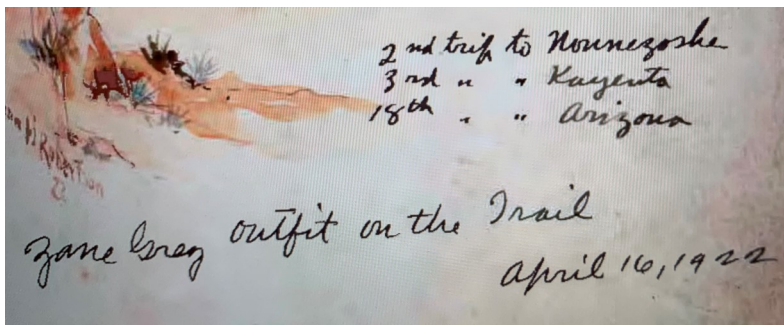 2nd trip to Nonnezoshe
3rd " " Kayenta
18th " " Arizona
Robertson
Zane Grey outfit on the Trail
April 16, 1922